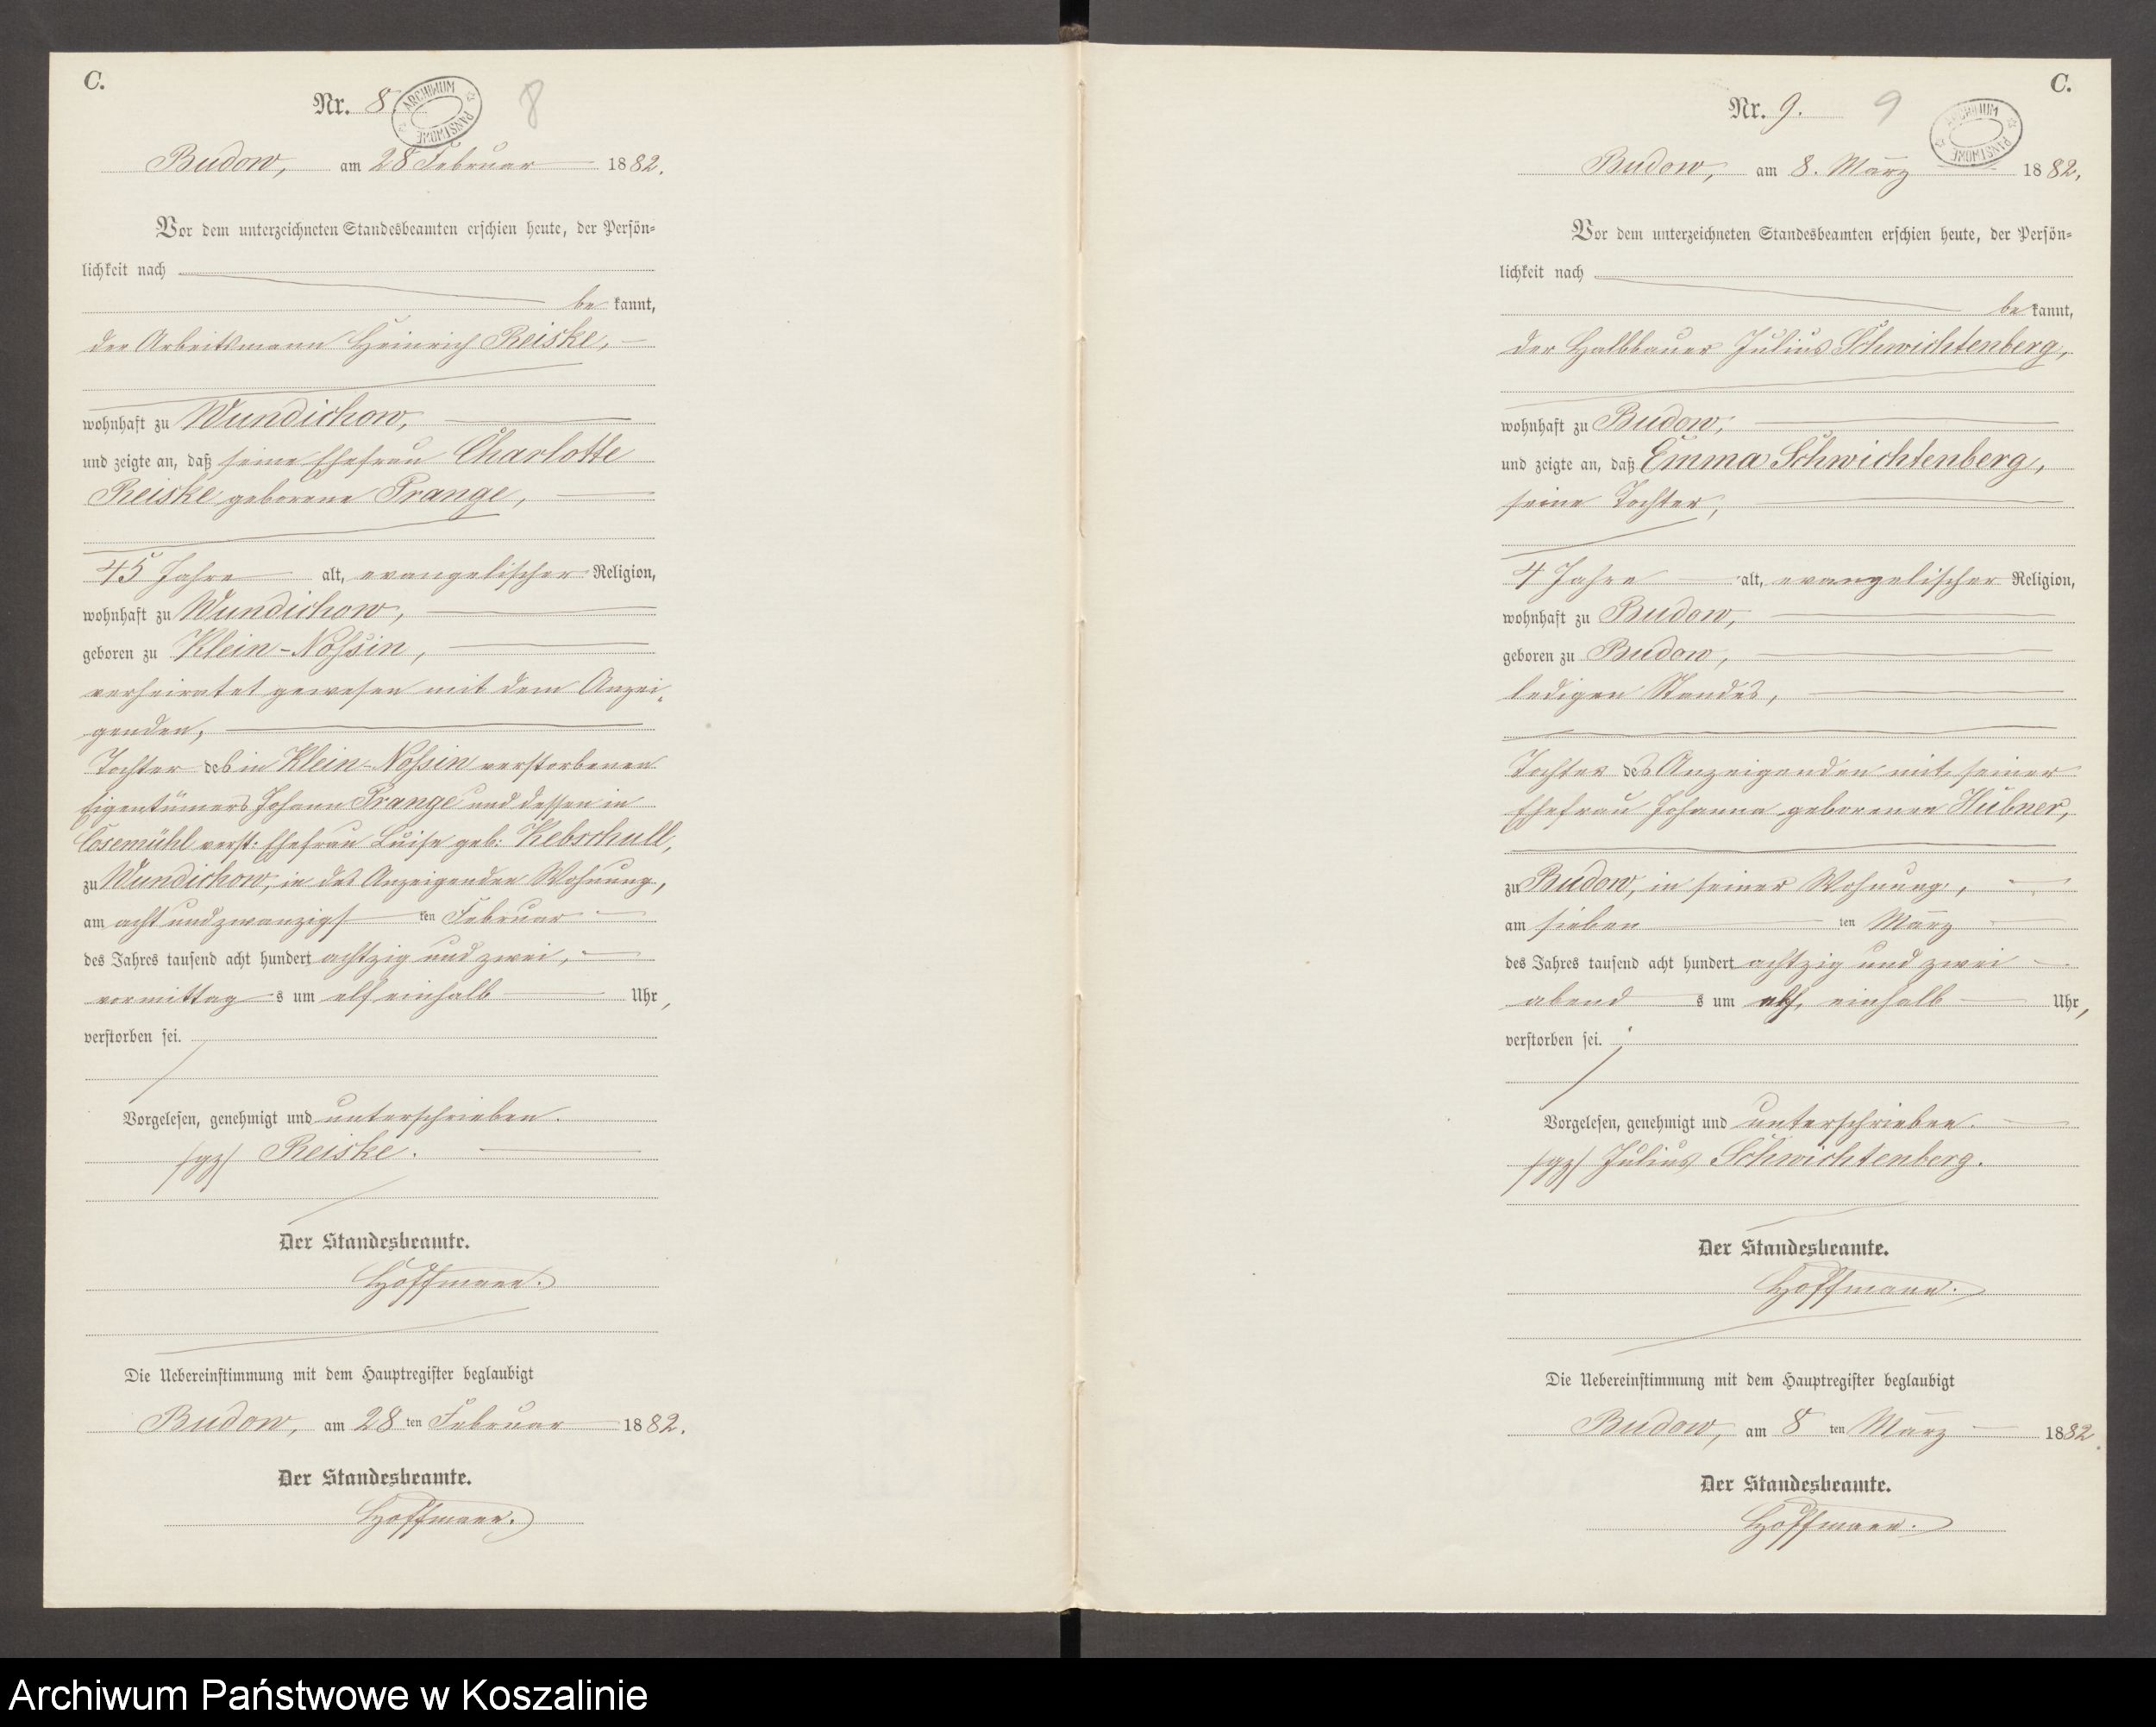 C.
Nr. 8.
8
ARCHIWUM PAŃSTWOWE
Budow, am 28 Februar 1882.
Vor dem unterzeichneten Standesbeamten erschien heute, der Persön-
lichkeit nach
be kannt,
der Arbeitsmann Heinrich Reiske,
wohnhaft zu Wundichow,
und zeigte an, daß seine Ehefrau Charlotte
Reiske geborene Prange,
45 Jahre alt, evangelischer Religion,
wohnhaft zu Wundichow,
geboren zu Klein-Nossin,
verheiratet gewesen mit dem Anzei-
genden,
Tochter des in Klein-Nossin verstorbenen
Eigentümers Johann Prange und dessen in
Cosemühl verst: Ehefrau Luise geb: Kebschull,
zu Wundichow, in des Anzeigenden Wohnung,
am acht und zwanzigs ten Februar
des Jahres tausend acht hundert achtzig und zwei,
vormittag s um elf einhalb Uhr,
verstorben sei.
Vorgelesen, genehmigt und unterschrieben.
/gz/ Reiske.
Der Standesbeamte.
Hoffmann.
Die Uebereinstimmung mit dem Hauptregister beglaubigt
Budow, am 28 ten Februar 1882.
Der Standesbeamte.
Hoffmann.
C.
Nr. 9.
9
ARCHIWUM PAŃSTWOWE
Budow, am 8. März 1882,
Vor dem unterzeichneten Standesbeamten erschien heute, der Persön-
lichkeit nach
be kannt,
der Halbbauer Julius Schwichtenberg,
wohnhaft zu Budow,
und zeigte an, daß Emma Schwichtenberg,
seine Tochter,
4 Jahre alt, evangelischer Religion,
wohnhaft zu Budow,
geboren zu Budow,
ledigen Standes,
Tochter des Anzeigenden mit seiner
Ehefrau Johanna geborenen Hübner,
zu Budow, in seiner Wohnung,
am sieben ten März
des Jahres tausend acht hundert achtzig und zwei
abend s um elf einhalb Uhr,
verstorben sei.
Vorgelesen, genehmigt und unterschrieben.
/gz/ Julius Schwichtenberg.
Der Standesbeamte.
Hoffmann.
Die Uebereinstimmung mit dem Hauptregister beglaubigt
Budow, am 8 ten März 1882.
Der Standesbeamte.
Hoffmann.
Archiwum Państwowe w Koszalinie